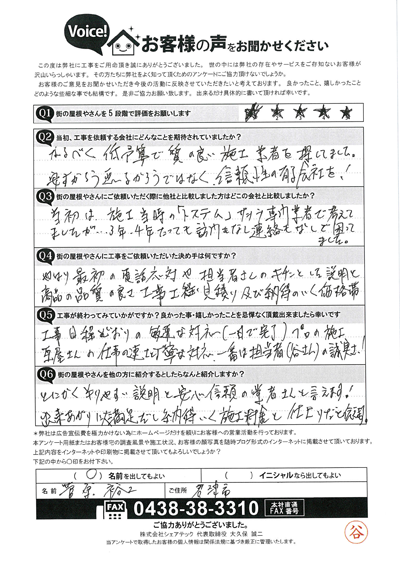 Voice! お客様の声をお聞かせください
この度は弊社に工事をご用命頂き誠にありがとうございました。世の中には弊社の存在やサービスをご存知ないお客様が
沢山いらっしゃいます。その方たちに弊社をよく知って頂くためのアンケートにご協力頂けないでしょうか。
お客様のご意見をお聞かせいただき今後の活動に反映させていただきたいと考えております。良かったこと、嬉しかったこと
どのような些細な事でも結構です。是非ご協力お願い致します。出来るだけ具体的に書いて頂ければ幸いです。
Q1 街の屋根やさんを5段階で評価をお願いします
★ ★ ★ ★ ★
Q2 当初、工事を依頼する会社にどんなことを期待されていましたか?
なるべく低予算で質の良い施工業者を探してました。
安すかろう悪いかろうではなく、信頼性の有る会社を!
Q3 街の屋根やさんにご依頼いただく際に他社と比較しました方はどこの会社と比較しましたか?
当初は、施工当時の
専門業者で考えて
ましたが…3年、4年たっても訪問もなし連絡もなしで困って
ました。
Q4 街の屋根やさんに工事をご依頼いただいた決め手は何ですか?
やはり最初の電話応対や担当者さんのキチンとした説明と
商品の品質の良さ工事工程見積り及び納得のいく価格帯
Q5 工事が終わってみていかがですか?良かった事・嬉しかったことを忌憚なく頂戴出来ましたら幸いです
工事日程どおりの敏速な対応(一日で完了)プロの施工
瓦屋さんの仕事の速さ丁寧な対応、一番は担当者(谷さん)の誠実さ!
Q6 街の屋根やさんを他の方に紹介するとしたらなんと紹介しますか?
とにかく判りやすい説明と安心、信頼の業者さんと言えます!
出来あがりは大満足だし、納得いく施工料金と仕上りだと
*弊社は広告宣伝費を極力かけない為にホームページだけを頼りにお客様への営業活動を行っております。
本アンケート用紙またはお客様宅の調査風景や施工状況、お客様の顔写真を随時ブログ形式のインターネットに掲載させて頂いております。
上記内容をインターネットや印刷物に掲載させて頂いてもよろしいでしょうか?
下記の中から〇印をお付下さい。
(〇)名前を出してもよい ( )イニシャルなら出してもよい
名前 菅原 裕二 ご住所 君津市
FAX 0438-38-3310 本社直通 FAX番号
ご協力ありがとうございました。
株式会社シェアテック 代表取締役 大久保 誠二
当アンケートで取得したお客様の個人情報は関係法規に基づき厳正に管理いたします。
谷